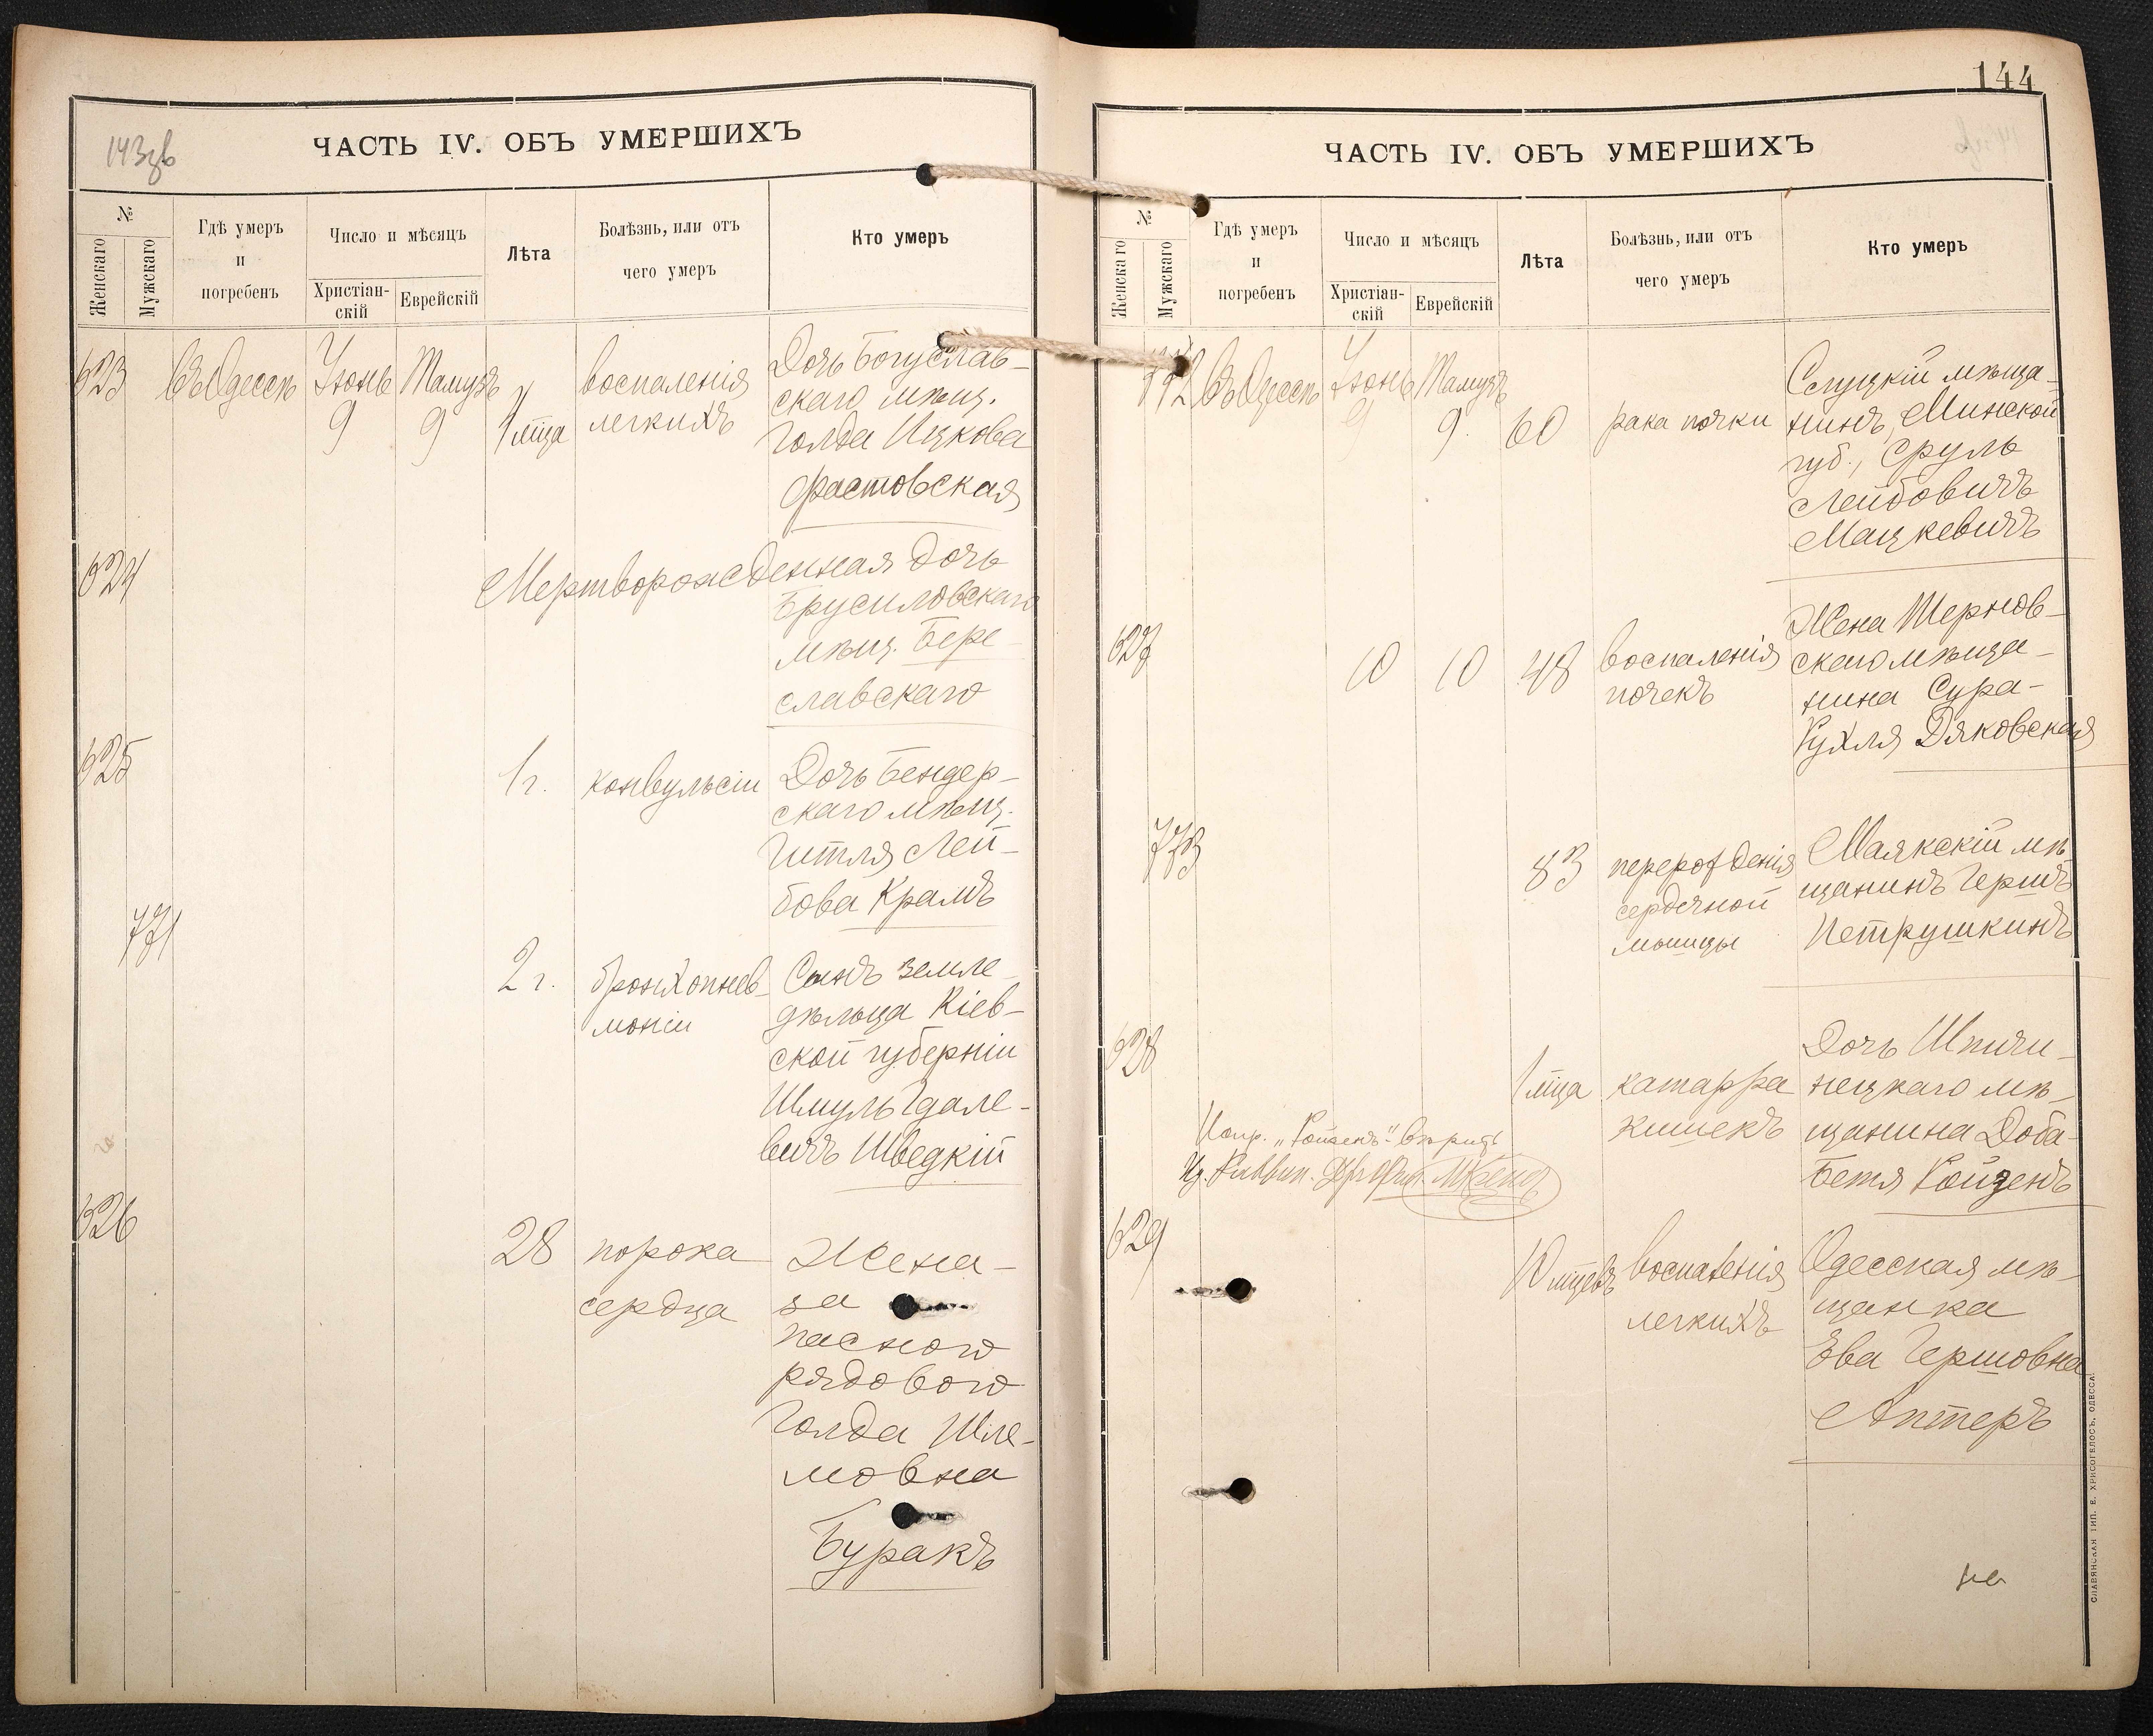 143зв
ЧАСТЬ IV. ОБЪ УМЕРШИХЪ
№
Женскаго
Мужскаго
Гдѣ умеръ
и
погребенъ
Число и мѣсяцъ
Христіан-
скій
Еврейскій
Лѣта
Болѣзнь, или отъ
чего умеръ
Кто умеръ
623 въ Одессѣ Іюнь 9 Тамузъ 9 1 м̃ца
воспаленія
легкихъ
Дочь Богуслав-
скаго мѣщ.
Голда Ицкова
Фастовская
624
Мертворожденная дочь
Брусиловскаго
мѣщ. Бере-
славскаго
625
1 г. конвульсіи
Дочь Бендер-
скаго мѣщ.
Гитля Лей-
бова Крамъ
771
2 г. бронхопнев-
моніи
Сынъ земле-
дѣльца Кіев-
ской губерніи
Шмуль Гдале-
вичъ Шведкій
626
28 порока
сердца
Жена
за
паснаго
рядового
Голда Шле-
мовна
Буракъ
144
ЧАСТЬ IV. ОБЪ УМЕРШИХЪ
№
Женскаго
Мужскаго
Гдѣ умеръ
и
погребенъ
Число и мѣсяцъ
Христіан-
скій
Еврейскій
Лѣта
Болѣзнь, или отъ
чего умеръ
Кто умеръ
772 въ Одессѣ Іюнь 9 Тамузъ 9 60 рака почки
Слуцкій мѣща-
нинъ, Минской
губ., Сруль
Лейбовичъ
Мацкевичъ
627
10 10 48 воспаленія
почекъ
Жена Тернов-
скаго мѣща-
нина Сура-
Рухля Дяковская
773
83 перерожденія
сердечной
мышцы
Маякскій мѣ-
щанинъ Гершъ
Петрушкинъ
628
1 м̃ца катарра
кишекъ
Дочь Шпичи-
нецкаго мѣ-
щанина Доба-
Бетя Ройзенъ
Испр. „Ройзенъ“ вѣрить
629
10 м̃цевъ воспаленія
легкихъ
Одесская мѣ-
щанка
Ева Гершовна
Аптеръ
на
СЛАВЯНСКАЯ ТИП. Е. ХРИСОГЕЛОСЪ, ОДЕССА.